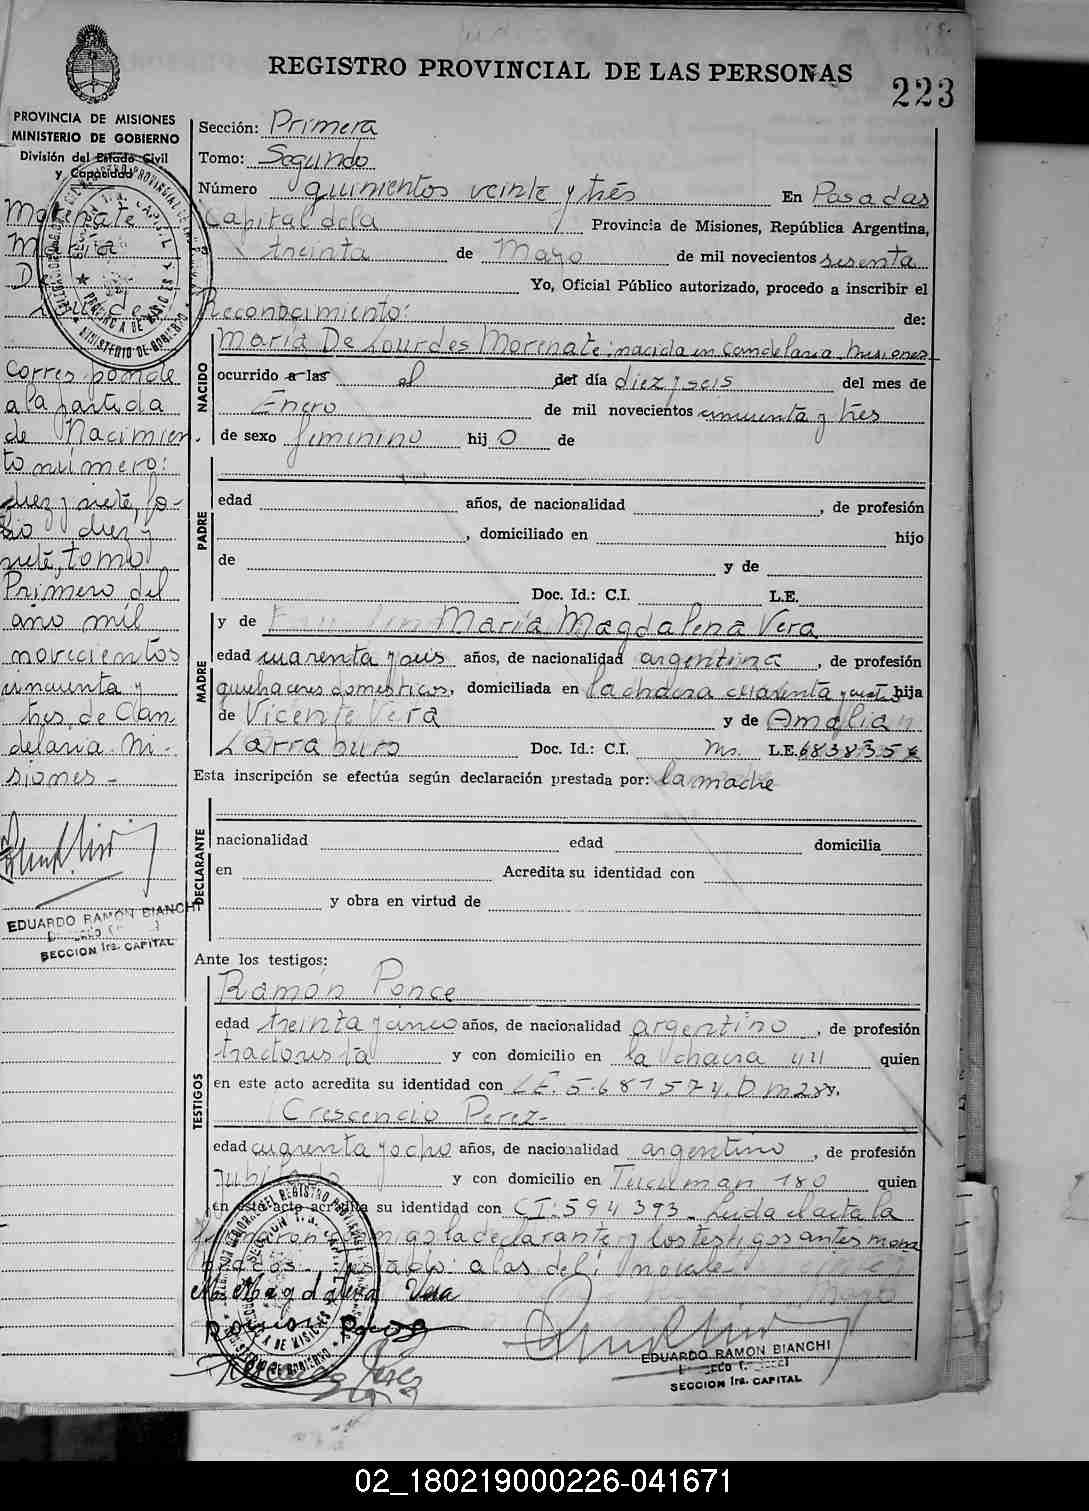 REGISTRO PROVINCIAL DE LAS PERSONAS
223
PROVINCIA DE MISIONES
MINISTERIO DE GOBIERNO
División del Estado Civil
y Capacidad
Morenate
Maria
De
Lourdes
Corresponde
a la partida
de Nacimien
to número:
diez y siete, fo-
lio diez y
siete, tomo
Primero del
año mil
novecientos
cincuenta y
tres de Can
delaria Mi-
siones -
EDUARDO RAMON BIANCHI
SECCION 1ra. CAPITAL
Sección: Primera
Tomo: Segundo
Número quinientos veinte y trés En Posadas
Capital dela Provincia de Misiones, República Argentina,
treinta de Mayo de mil novecientos sesenta
Yo, Oficial Público autorizado, procedo a inscribir el
Reconocimiento: de:
NACIDO
Maria De Lourdes Morenate: nacida en Candelaria Misiones
ocurrido a las el del día diez y seis del mes de
Enero de mil novecientos cincuenta y trés
de sexo femenino hij o de
PADRE
edad años, de nacionalidad , de profesión
, domiciliado en hijo
de y de
Doc. Id.: C.I. L.E.
MADRE
y de Maria Magdalena Vera
edad cuarenta y seis años, de nacionalidad argentina , de profesión
quehaceres domesticos, domiciliada en la chacra cuarenta y hija
de Vicente Vera y de Amalia
Larraburo Doc. Id.: C.I. L.E. 683835
Esta inscripción se efectúa según declaración prestada por: la madre
DECLARANTE
nacionalidad edad domicilia
en Acredita su identidad con
y obra en virtud de
Ante los testigos:
TESTIGOS
Ramón Ponce
edad treinta y cinco años, de nacionalidad argentino , de profesión
tractorista y con domicilio en la chacra quien
en este acto acredita su identidad con L.E. 5.681574. D m
Crescencio Perez-
edad cuarenta y ocho años, de nacionalidad argentino , de profesión
Jubilado y con domicilio en Tucuman 180 quien
en este acto acredita su identidad con CI: 594393. Leida el acta la
firmaron conmigo la declarante y los testigos antes mencio
nados.
M. Magdalena Vera
Ramon Ponce
EDUARDO RAMON BIANCHI
SECCION 1ra. CAPITAL
02_180219000226-041671